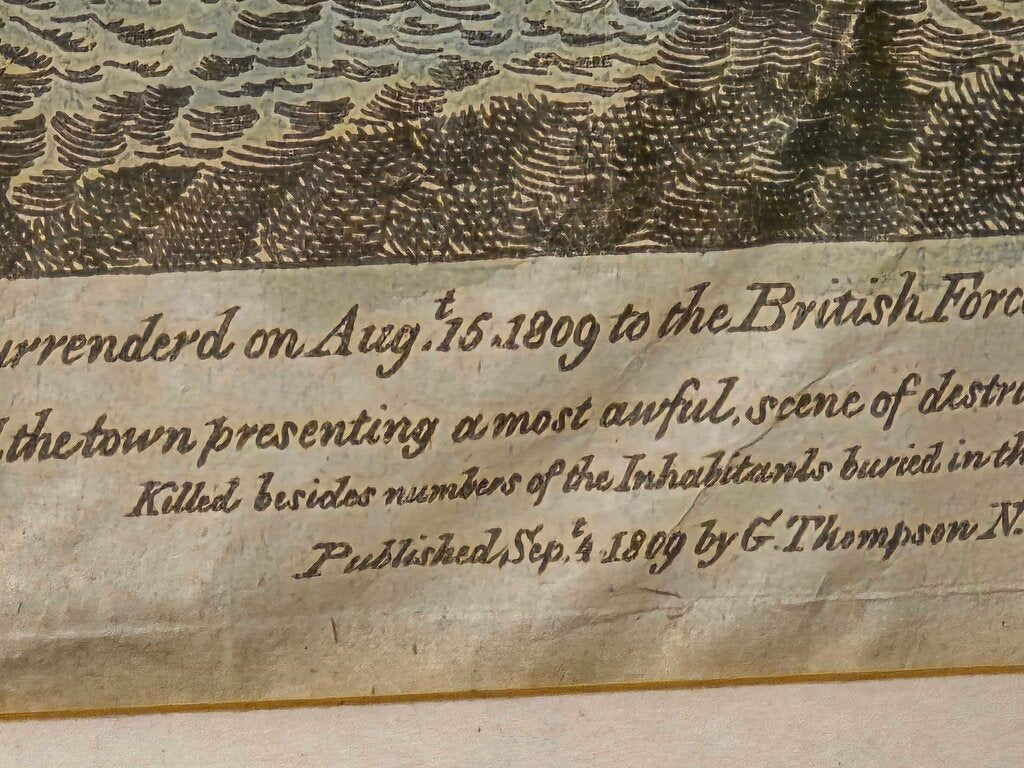 urrenderd on Aug.t 15. 1809 to the British Forc
the town presenting a most awful, scene of destru
Killed besides numbers of the Inhabitants buried in th
Published, Sep.t 4 1809 by G. Thompson N.